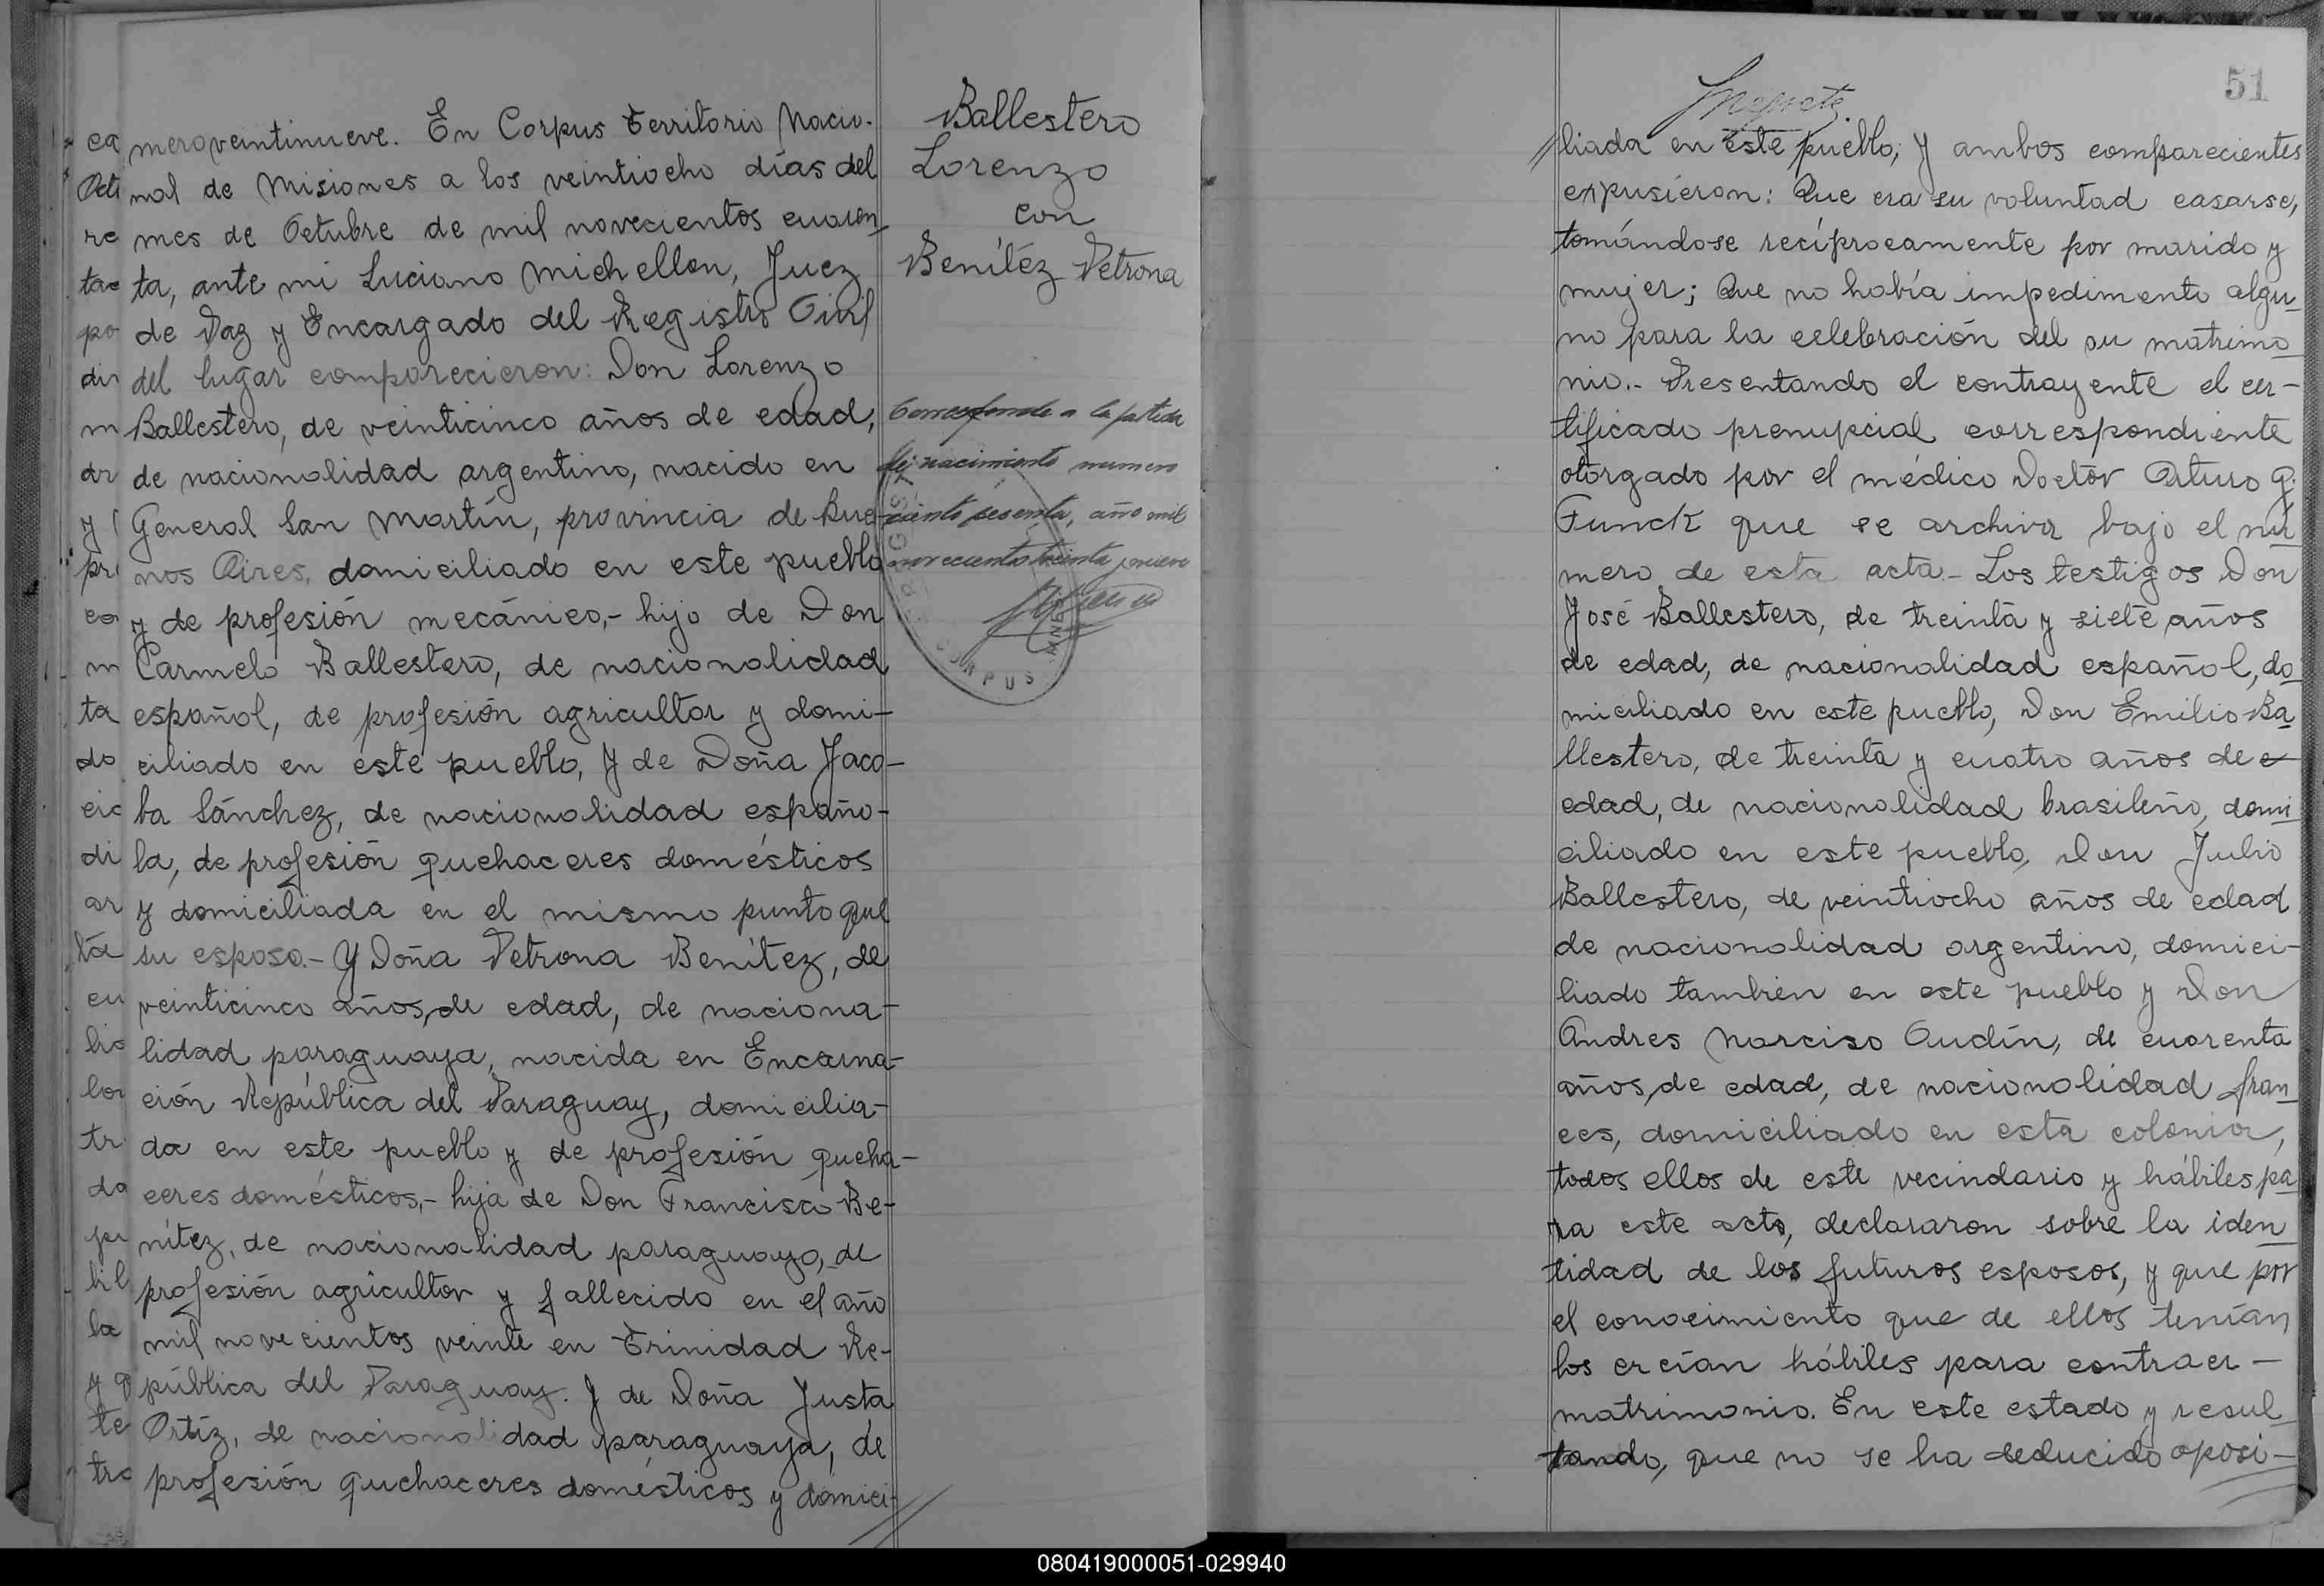 mero veintinueve. En Corpus Territorio Nacio-
nal de Misiones a los veintiocho días del
mes de Octubre de mil novecientos cuaren
ta, ante mi Luciano Michellon, Juez
de Paz y Encargado del Registro Civil
del lugar comparecieron: Don Lorenzo
Ballestero, de veinticinco años de edad,
de nacionalidad argentino, nacido en
General San Martín, provincia de Bue-
nos Aires, domiciliado en este pueblo
y de profesión mecánico,- hijo de Don
Carmelo Ballestero, de nacionalidad
español, de profesión agricultor y domi-
ciliado en este pueblo, y de Doña Jaco-
ba Sánchez, de nacionalidad españo-
la, de profesión quehaceres domésticos
y domiciliada en el mismo punto que
su esposo.- Y Doña Petrona Benítez, de
veinticinco años, de edad, de naciona-
lidad paraguaya, nacida en Encarna-
ción República del Paraguay, domicilia-
da en este pueblo y de profesión queha-
ceres domésticos,- hija de Don Francisco Be-
nítez, de nacionalidad paraguayo, de
profesión agricultor y fallecido en el año
mil novecientos veinte en Trinidad Re-
pública del Paraguay. Y de Doña Justa
Ortíz, de nacionalidad paraguaya, de
profesión quehaceres domésticos y domici-
Ballestero
Lorenzo
con
Benítez Petrona
Corresponde a la partida
de nacimiento numero
ciento sesenta, año mil
novecientos treinta y nueve
CORPUS
51
liada en este pueblo; y ambos comparecientes
expusieron: Que era su voluntad casarse,
tomándose recíprocamente por marido y
mujer; Que no había impedimento algu-
no para la celebración del su matrimo-
nio.- Presentando el contrayente el cer-
tificado prenupcial correspondiente
otorgado por el médico Doctor Arturo G.
Funck que se archiva bajo el nú-
mero de esta acta.- Los testigos Don
José Ballestero, de treinta y siete años
de edad, de nacionalidad español, do-
miciliado en este pueblo, Don Emilio Ba-
llestero, de treinta y cuatro años de e
edad, de nacionalidad brasileño, domi-
ciliado en este pueblo, Don Julio
Ballestero, de veintiocho años de edad
de nacionalidad argentino, domici-
liado tambien en este pueblo y Don
Andres Narciso Audín, de cuarenta
años, de edad, de nacionalidad fran-
ces, domiciliado en esta colonia,
todos ellos de este vecindario y hábiles pa-
ra este acto, declararon sobre la iden-
tidad de los futuros esposos, y que por
el conocimiento que de ellos tenían
los creían hábiles para contraer-
matrimonio. En este estado y resul-
tando, que no se ha deducido oposi-
080419000051-029940